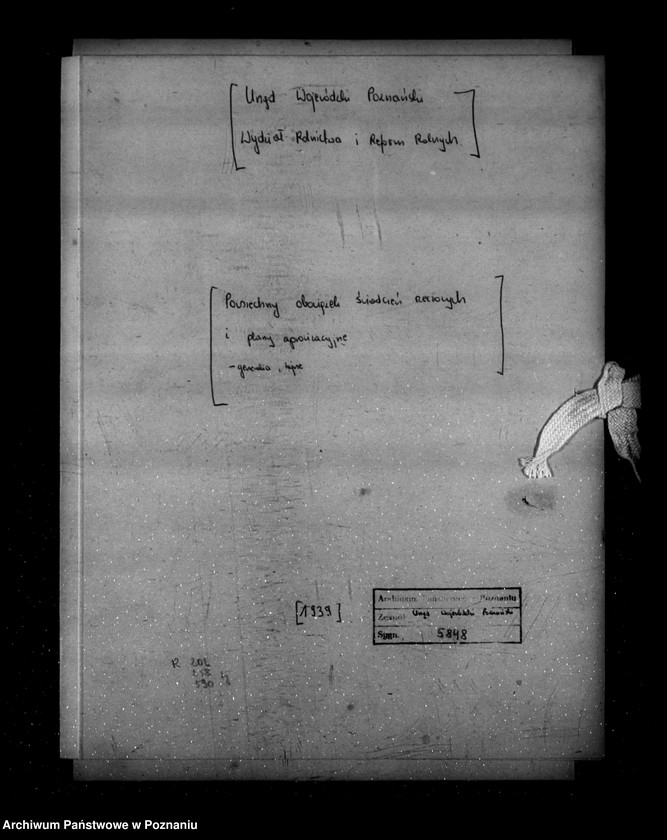 [Urząd Wojewódzki Poznański
Wydział Rolnictwa i Reform Rolnych]
[Powszechny obowiązek świadczeń rzeczowych
i plany aprowizacyjne
- generalia, tajne]
[1939]
Archiwum Państwowe w Poznaniu
Zespół Urząd Wojewódzki Poznański
Sygn. 5848
R 202
590
Archiwum Państwowe w Poznaniu